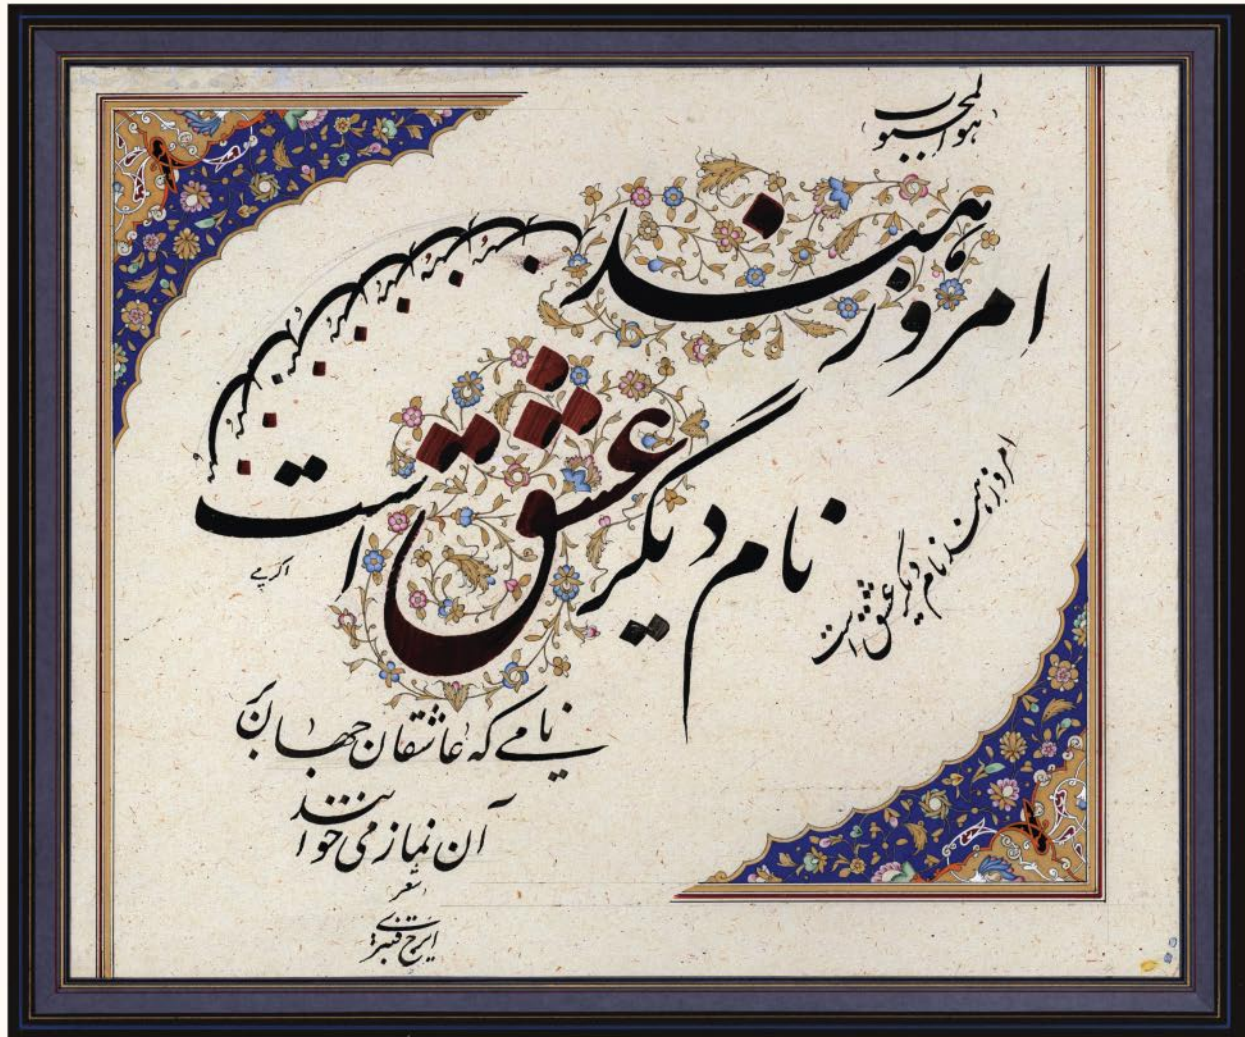 هو المحبوب
امروز هند
نام دیگر عشق است
امروز هند نام دیگر عشق است
اکرمی
نامی که عاشقان جهان بر
آن نماز می خوانند
شعر
ایرج قنبری